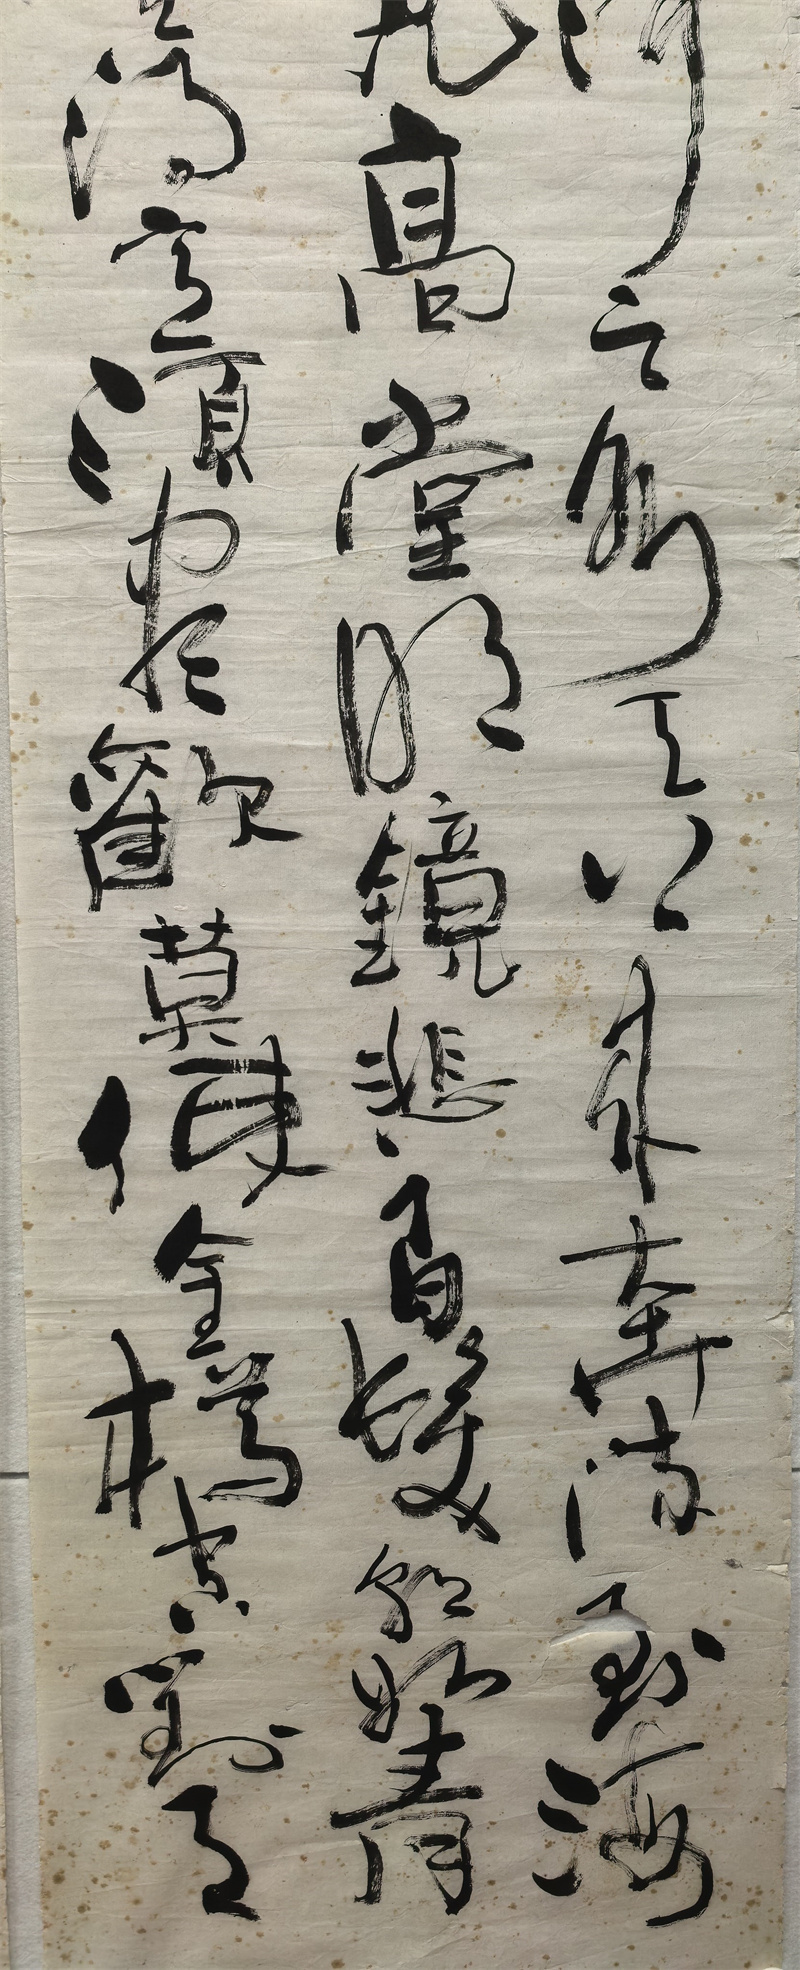 河之水天上來奔流到海
見高堂明鏡悲白髮朝如青
生得意須盡歡莫使金樽空對月